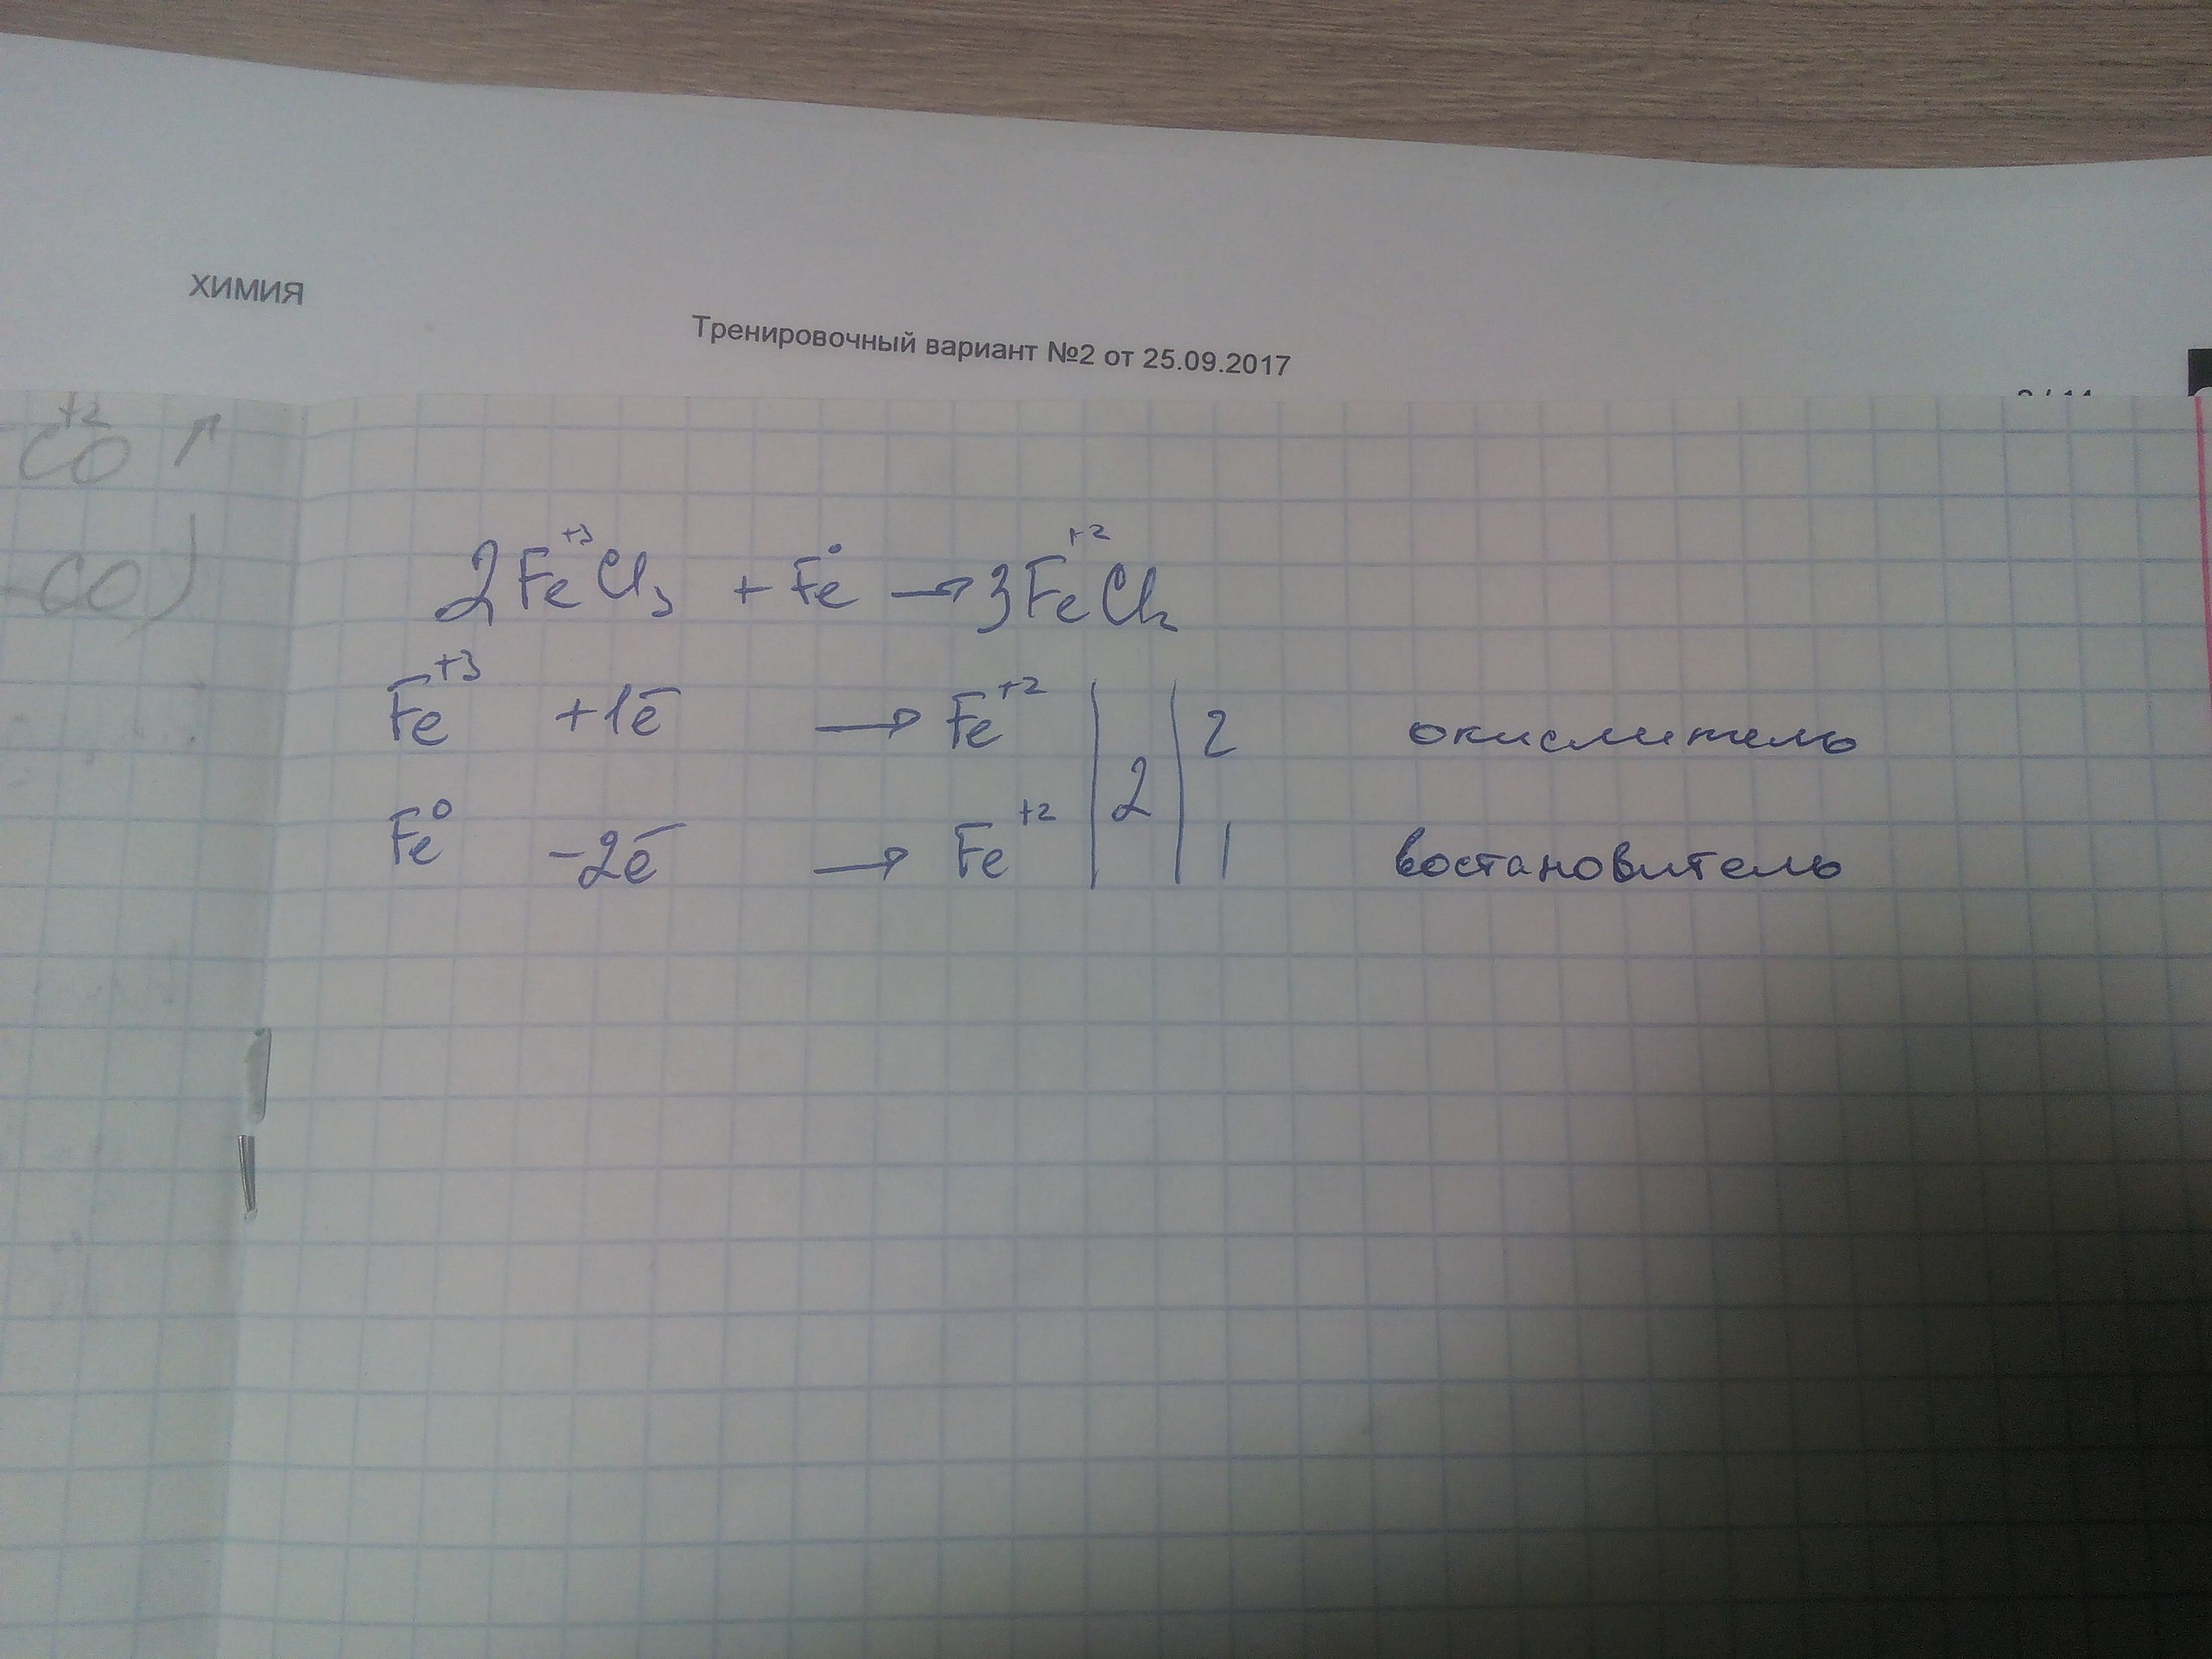 ХИМИЯ
Тренировочный вариант №2 от 25.09.2017
+2
CO ↑
-CO)
2Fe⁺³Cl₃ + Fe⁰ → 3Fe⁺²Cl₂
Fe⁺³ +1ē → Fe⁺² | 2 | 2 окислитель
Fe⁰ -2ē → Fe⁺² | | 1 востановитель